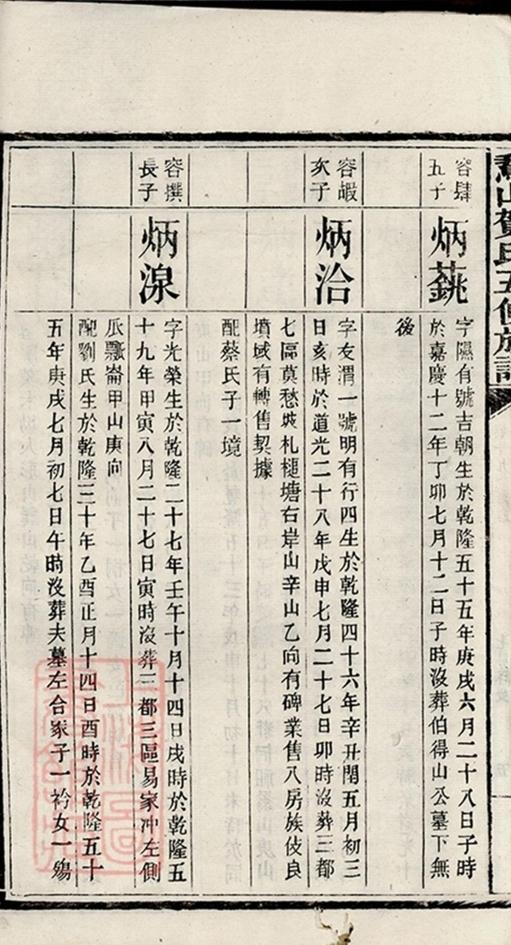 山賀氏五修族譜
容肆
五子
炳
字隰有號吉朝生於乾隆五十五年庚戌六月二十八日子時
於嘉慶十二年丁卯七月十二日子時沒葬伯得山公墓下無
後
容嘏
次子
炳洽
字友渭一號明有行四生於乾隆四十六年辛丑閏五月初三
日亥時於道光二十八年戊申七月二十七日卯時沒葬三都
七區莫愁坡札槌塘右岸山辛山乙向有碑業售八房族伎良
墳域有轉售契據
配蔡氏子一境
容撰
長子
炳湶
字光榮生於乾隆二十七年壬午十月十四日戌時於乾隆五
十九年甲寅八月二十七日寅時沒葬三都三區易家冲左側
瓜瓢崙甲山庚向
配劉氏生於乾隆三十年乙酉正月十四日酉時於乾隆五十
五年庚戌七月初七日午時沒葬夫墓左合冢子一衿女一殤